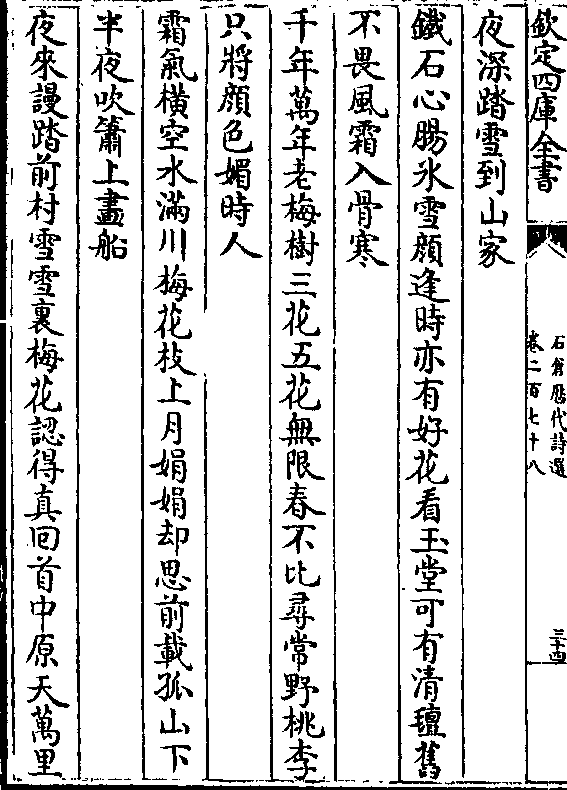 欽定四庫全書
石倉歷代詩選
卷二百七十八
三十四
夜深踏雪到山家
鐵石心腸氷雪顔逢時亦有好花看玉堂可有清癯舊
不畏風霜入骨寒
千年萬年老梅樹三花五花無限春不比尋常野桃李
只將顔色媚時人
霜氣橫空水滿川梅花枝上月娟娟却思前載孤山下
半夜吹簫上畫船
夜來謾踏前村雪雪裏梅花認得真回首中原天萬里